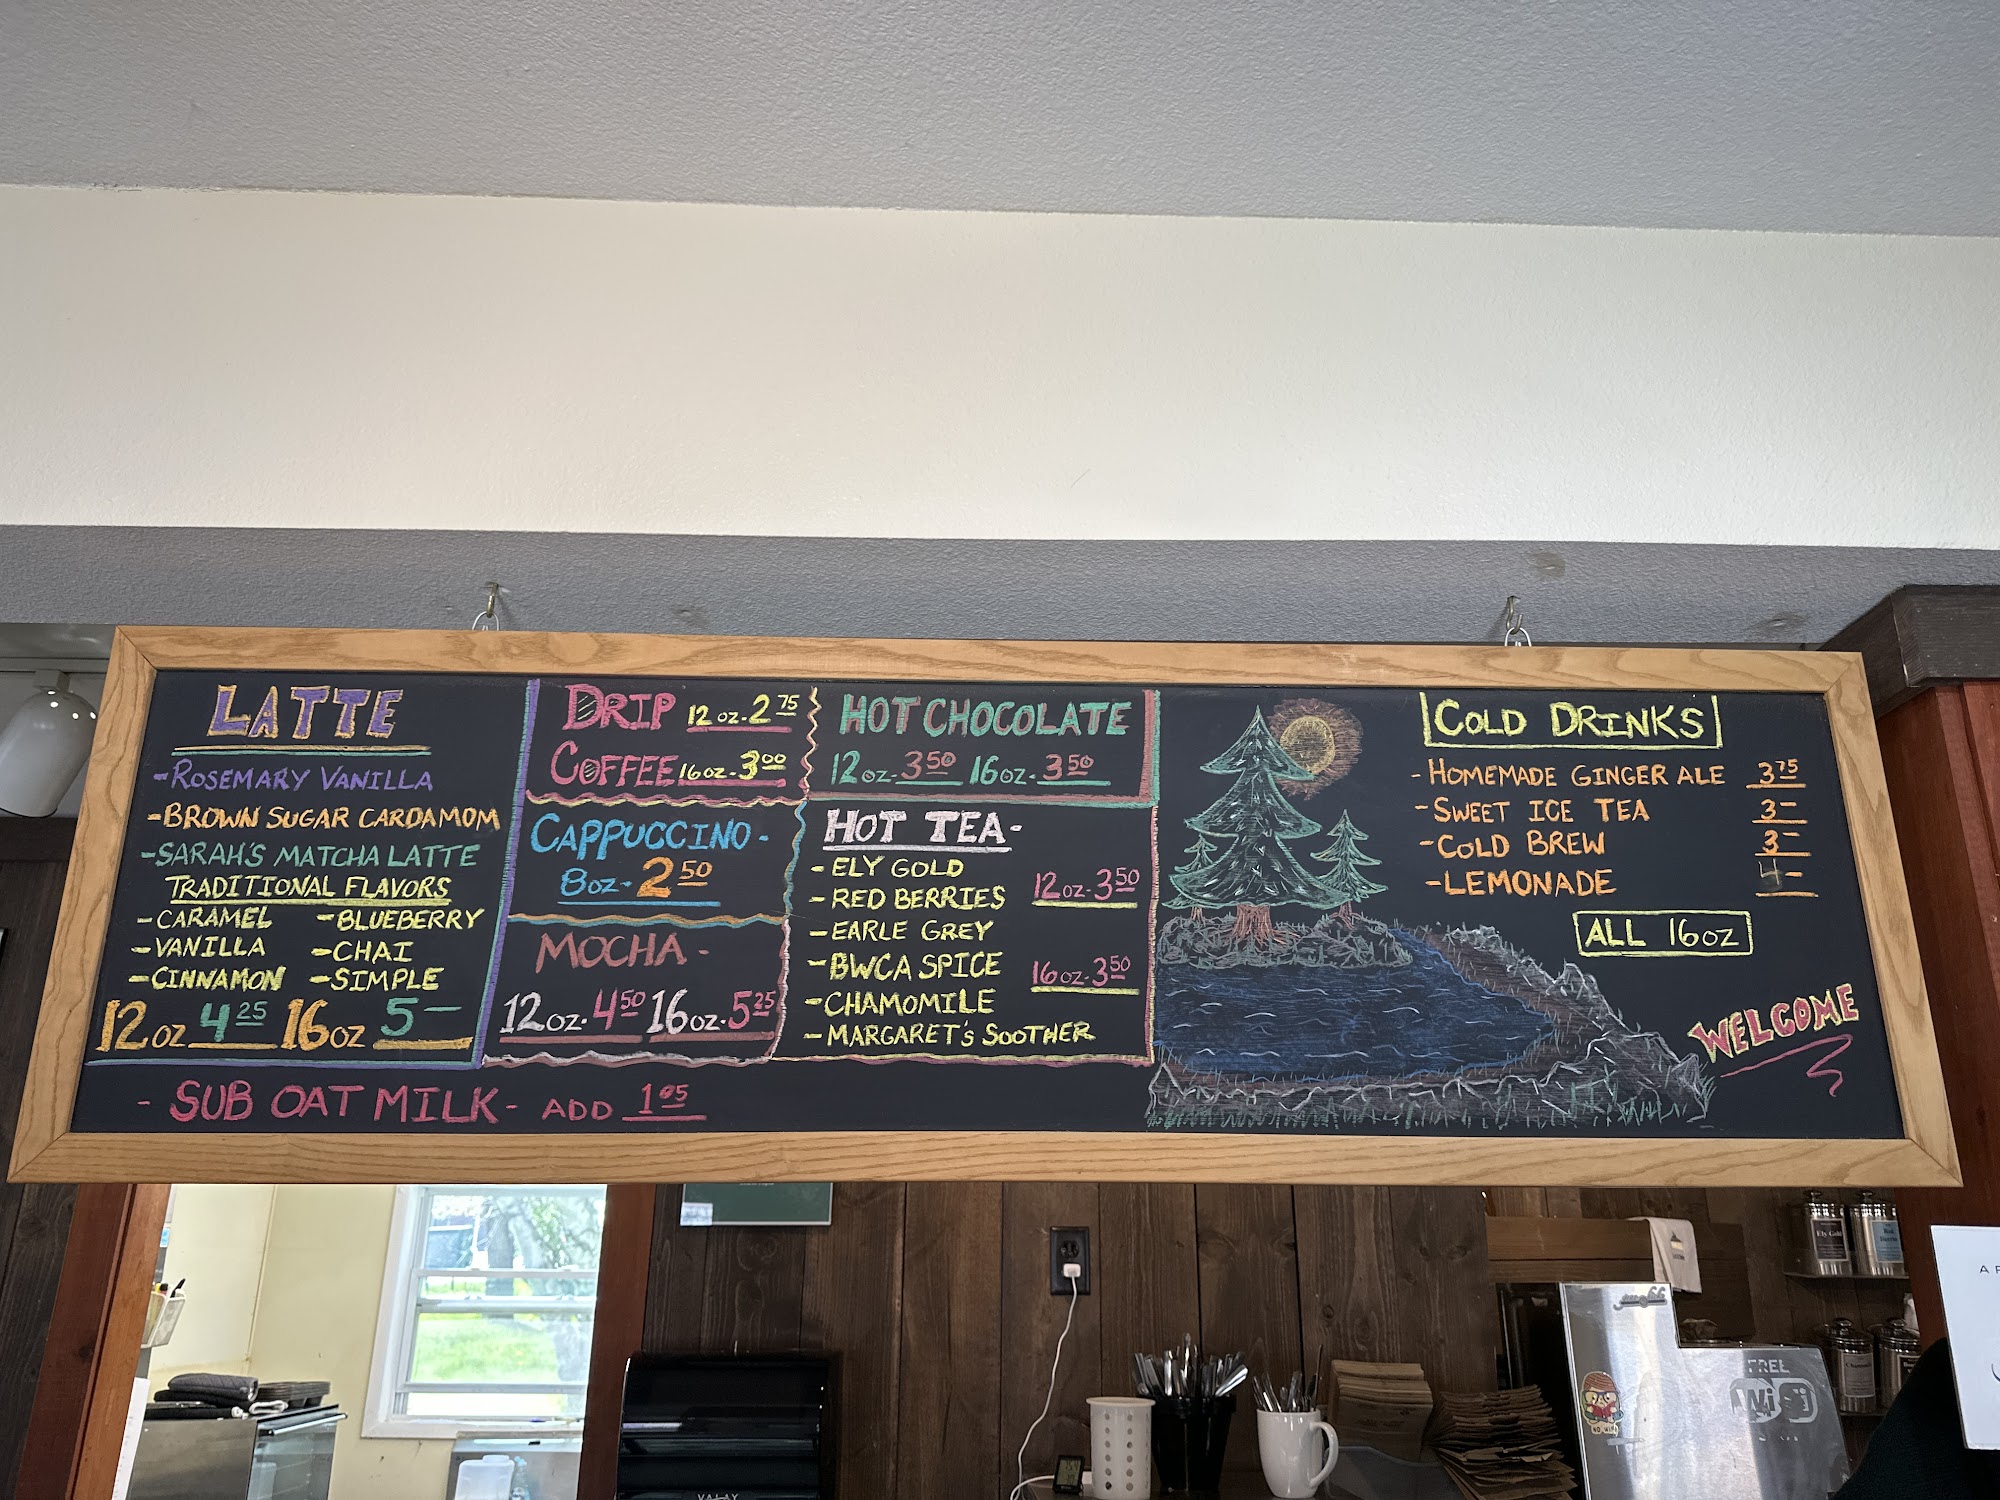 LATTE
-ROSEMARY VANILLA
-BROWN SUGAR CARDAMOM
-SARAH'S MATCHA LATTE
TRADITIONAL FLAVORS
-CARAMEL -BLUEBERRY
-VANILLA -CHAI
-CINNAMON -SIMPLE
12oz 4 25 16oz 5-
DRIP 12oz-2 75
COFFEE 16oz-3 00
CAPPUCCINO-
8oz-2 50
MOCHA-
12oz-4 50 16oz-5 25
HOT CHOCOLATE
12oz-3 50 16oz-3 50
HOT TEA-
-ELY GOLD
-RED BERRIES 12oz-3 50
-EARLE GREY
-BWCA SPICE 16oz-3 50
-CHAMOMILE
-MARGARET'S SOOTHER
COLD DRINKS
-HOMEMADE GINGER ALE 3 75
-SWEET ICE TEA 3-
-COLD BREW 3-
-LEMONADE 4-
ALL 16oz
WELCOME
- SUB OAT MILK- ADD 1 05
Ely Gold
FREE
WiFi